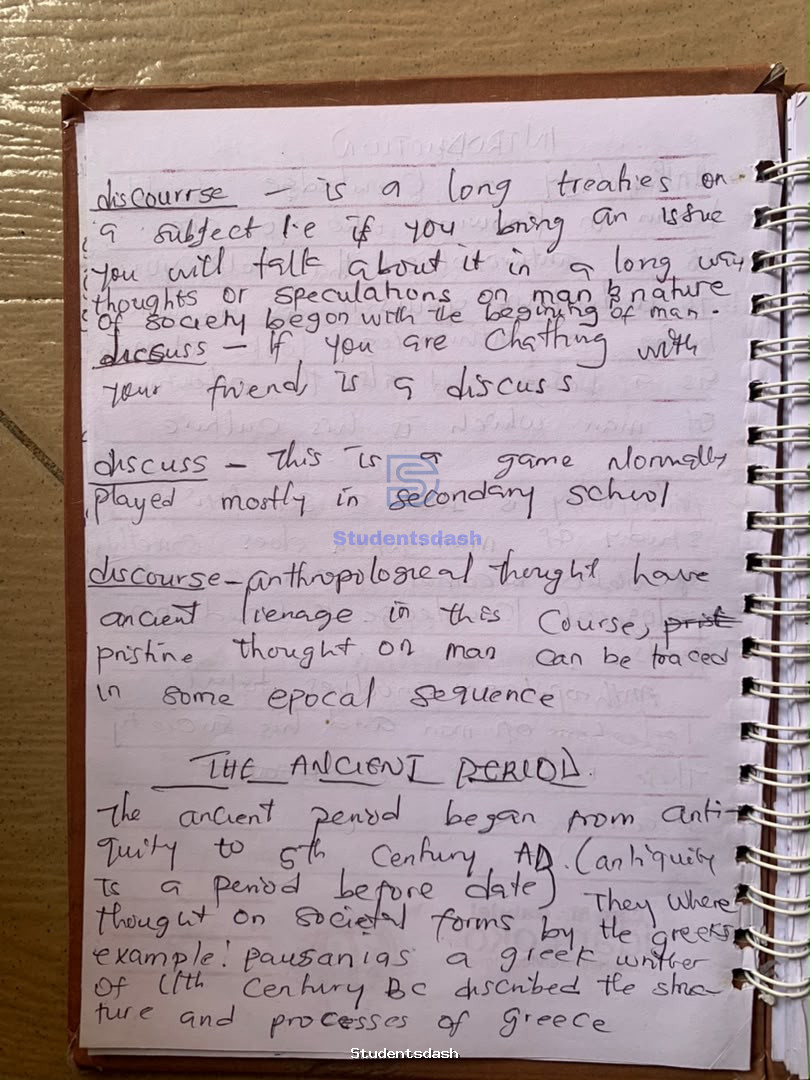 discourrse - is a long treaties on
a subject i.e if you bring an issue
you will talk about it in a long way
thoughts or speculations on man & nature
of society began with the begining of man.
dicsuss - if you are Chatting with
your friend, is a discuss
discuss - this is a game Normally
played mostly in secondary school
Studentsdash
discourse - anthropological thought have
ancient lienage in this Course, prist
pristine thought on man can be traced
in some epocal sequence
THE ANCIENT PERIOD.
the ancient period began from anti-
quity to 5th Century AD. (antiquity
is a period before date) They where
thought on societal forms by the greeks
example: pausanias a greek writher
of 11th Century BC discribed the struc-
ture and processes of Greece
Studentsdash